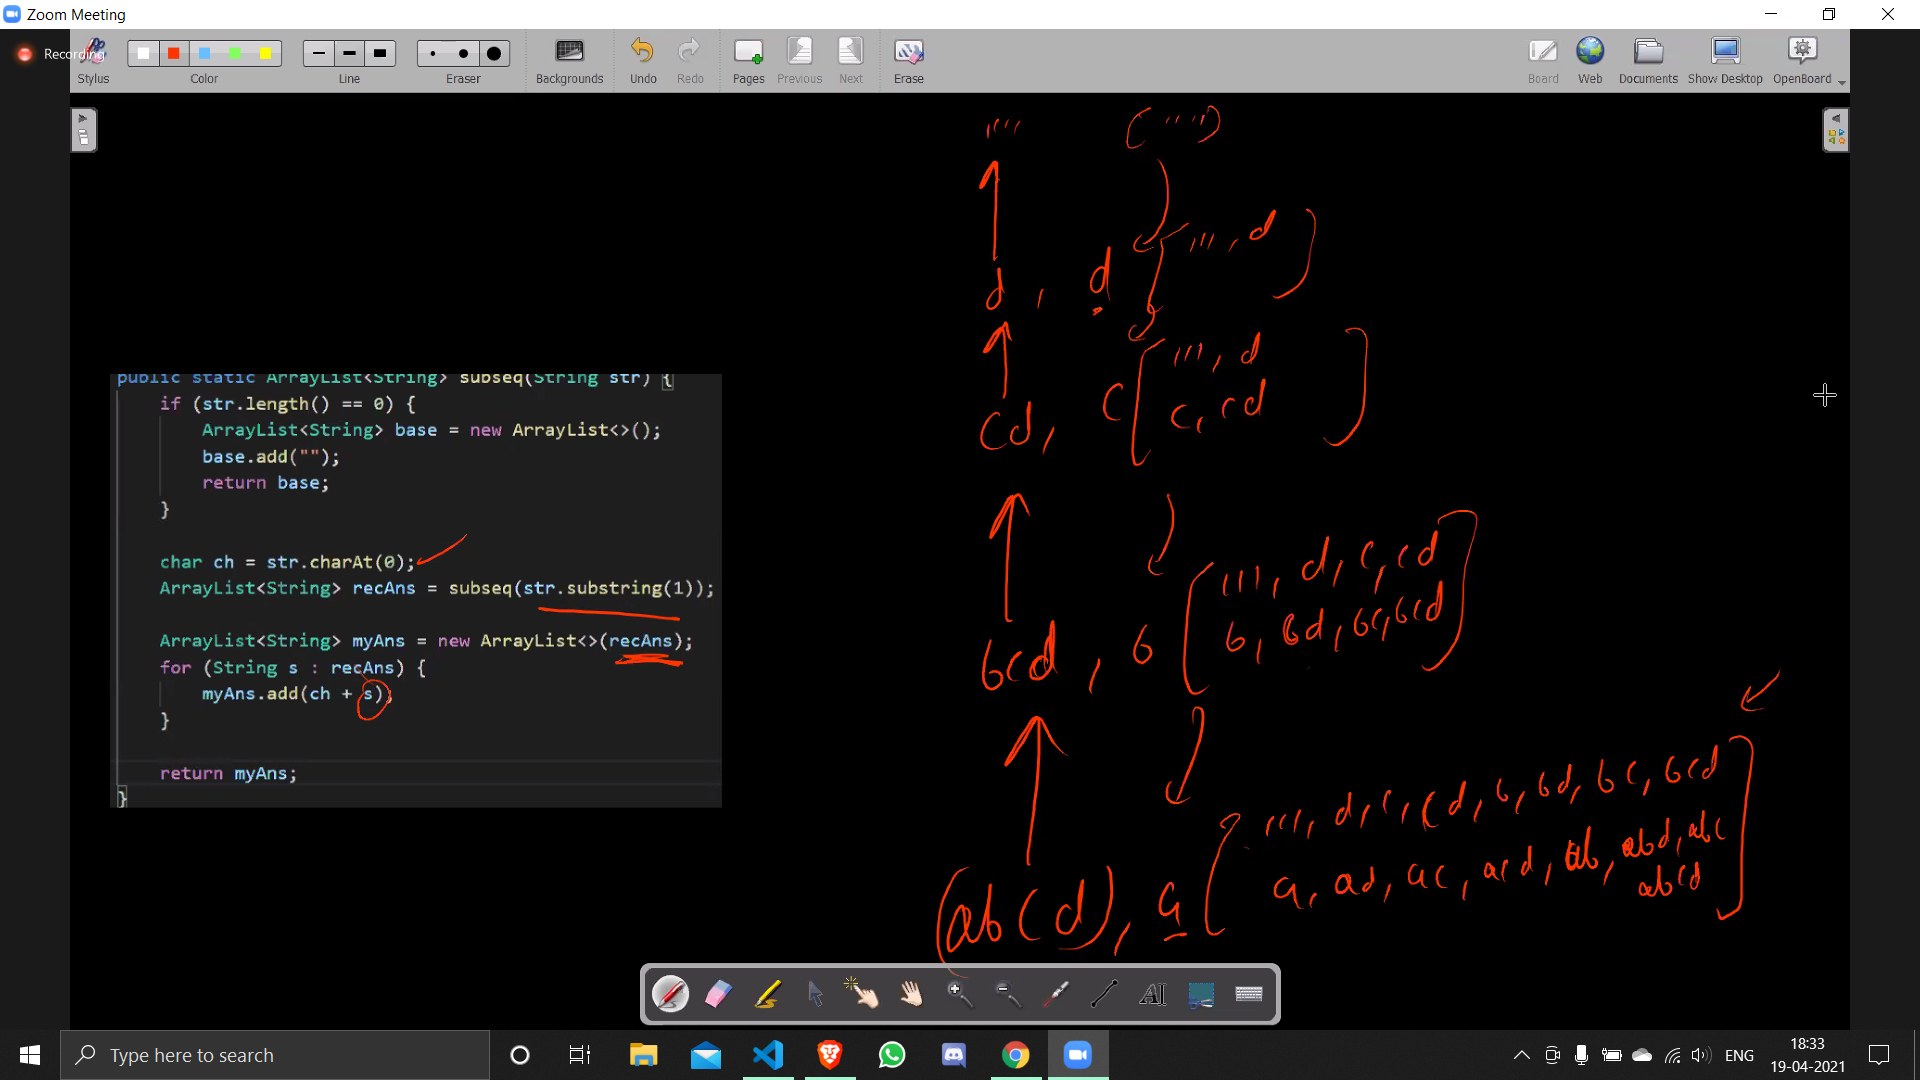 Zoom Meeting
Recording
Stylus Color Line Eraser Backgrounds Undo Redo Pages Previous Next Erase Board Web Documents Show Desktop OpenBoard
"" ("")
d, d ["", d]
cd, c ["", d
c, cd]
public static ArrayList<String> subseq(String str) {
if (str.length() == 0) {
ArrayList<String> base = new ArrayList<>();
base.add("");
return base;
}
char ch = str.charAt(0);
ArrayList<String> recAns = subseq(str.substring(1));
ArrayList<String> myAns = new ArrayList<>(recAns);
for (String s : recAns) {
myAns.add(ch + s);
}
return myAns;
}
bcd, b ["", d, c, cd
b, bd, bc, bcd]
(abcd), a ["", d, c, cd, b, bd, bc, bcd
a, ad, ac, acd, ab, abd, abc
abcd]
AI
Type here to search
ENG
18:33
19-04-2021